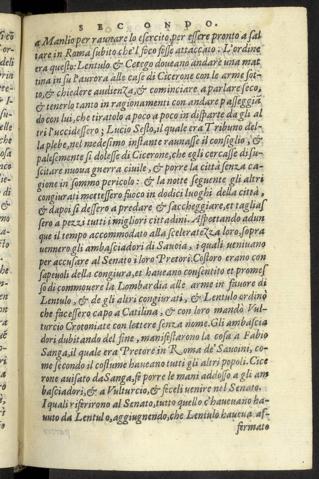 SECONDO.
a Manlio per raunare lo esercito, per essere pronto a sal
tare in Roma subito, che'l foco fosse attaccato: L'ordine
era questo: Lentulo & Cetego doueano andare una mat
tina in su l'aurora alle case di Cicerone con le arme sot-
to, & chiedere audienza, & cominciare a parlare seco,
& tenerlo tanto in ragionamenti con andare passeggia
do con lui, che tiratolo a poco a poco in disparte da gli al
tri l'uccidessero; Lucio Sesto, il quale era Tribuno del-
la plebe, nel medesimo instante raunasse il consiglio, &
palesemente si dolesse di Cicerone, che egli cercasse disu-
scitare nuoua guerra ciuile, & porre la città senza ca-
gione in sommo pericolo: & la notte seguente gli altri
congiurati mettessero fuoco in dodici luoghi della città,
& dapoi si dessero a predare & saccheggiare, et taglias
sero a pezzi tutti i migliori cittadini. Aspettando adun
que il tempo accommodato alla sceleratezza loro, sopra
uennero gli ambasciadori di Sauoia, i quali ueniuano
per accusare al Senato i loro Pretori. Costoro erano con
sapeuoli della congiura, et haueano consentito et promes
so di commouere la Lombardia alle arme in fauore di
Lentulo, & de gli altri congiurati, & Lentulo ordinò
che facessero capo a Catilina, & con loro mandò Vul-
turcio Crotoniate con lettere senza nome. Gli ambascia
dori dubitando del fine, manifestarono la cosa a Fabio
Sanga, il quale era Pretore in Roma de' Sauoini, co-
me secondo il costume haueano tutti gli altri popoli. Cice
rone auisato da Sanga, fe porre le mani addosso a gli am
basciadori, & a Vulturcio, & feceli uenire nel Senato.
I quali riferirono al Senato, tutto quello c'haueuano ha-
uuto da Lentulo, aggiugnendo, che Lentulo haueua af-
fermato